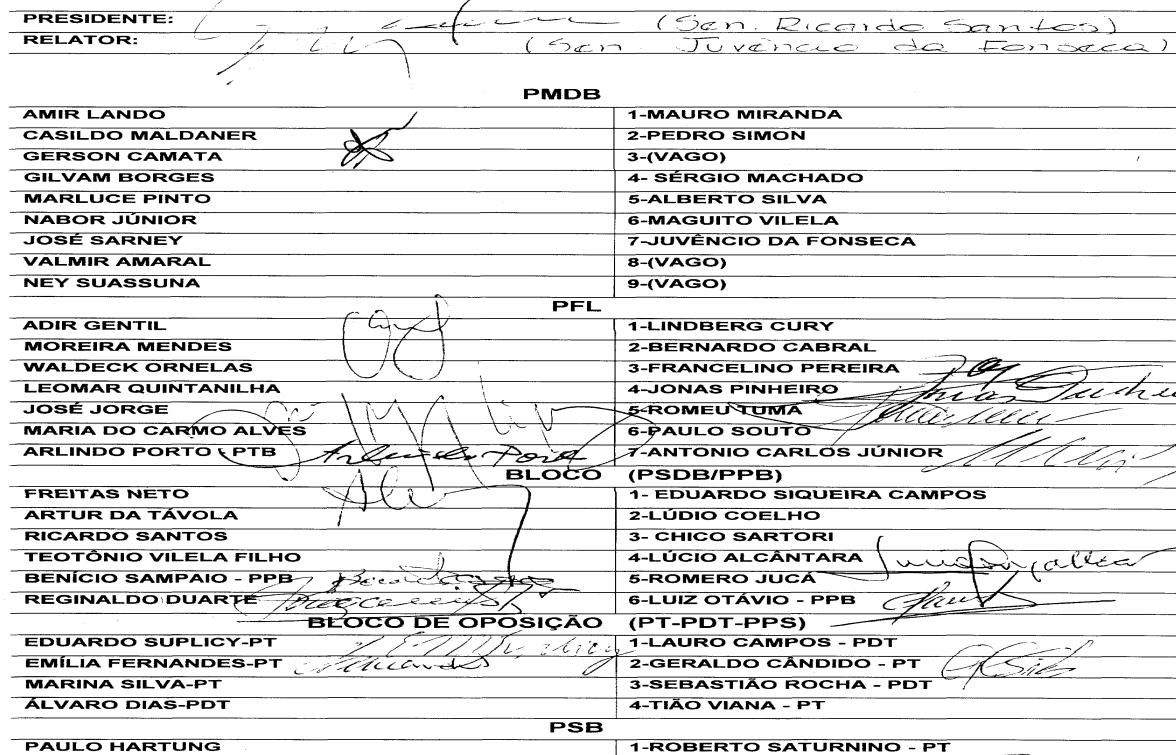 PRESIDENTE: (Sen. Ricardo Santos)
RELATOR: (Sen Juvêncio da Fonseca)
PMDB
AMIR LANDO 1-MAURO MIRANDA
CASILDO MALDANER 2-PEDRO SIMON
GERSON CAMATA 3-(VAGO)
GILVAM BORGES 4- SÉRGIO MACHADO
MARLUCE PINTO 5-ALBERTO SILVA
NABOR JÚNIOR 6-MAGUITO VILELA
JOSÉ SARNEY 7-JUVÊNCIO DA FONSECA
VALMIR AMARAL 8-(VAGO)
NEY SUASSUNA 9-(VAGO)
PFL
ADIR GENTIL 1-LINDBERG CURY
MOREIRA MENDES 2-BERNARDO CABRAL
WALDECK ORNELAS 3-FRANCELINO PEREIRA
LEOMAR QUINTANILHA 4-JONAS PINHEIRO
JOSÉ JORGE 5-ROMEU TUMA
MARIA DO CARMO ALVES 6-PAULO SOUTO
ARLINDO PORTO - PTB 7-ANTONIO CARLOS JÚNIOR
BLOCO (PSDB/PPB)
FREITAS NETO 1- EDUARDO SIQUEIRA CAMPOS
ARTUR DA TÁVOLA 2-LÚDIO COELHO
RICARDO SANTOS 3- CHICO SARTORI
TEOTÔNIO VILELA FILHO 4-LÚCIO ALCÂNTARA
BENÍCIO SAMPAIO - PPB 5-ROMERO JUCÁ
REGINALDO DUARTE 6-LUIZ OTÁVIO - PPB
BLOCO DE OPOSIÇÃO (PT-PDT-PPS)
EDUARDO SUPLICY-PT 1-LAURO CAMPOS - PDT
EMÍLIA FERNANDES-PT 2-GERALDO CÂNDIDO - PT
MARINA SILVA-PT 3-SEBASTIÃO ROCHA - PDT
ÁLVARO DIAS-PDT 4-TIÃO VIANA - PT
PSB
PAULO HARTUNG 1-ROBERTO SATURNINO - PT